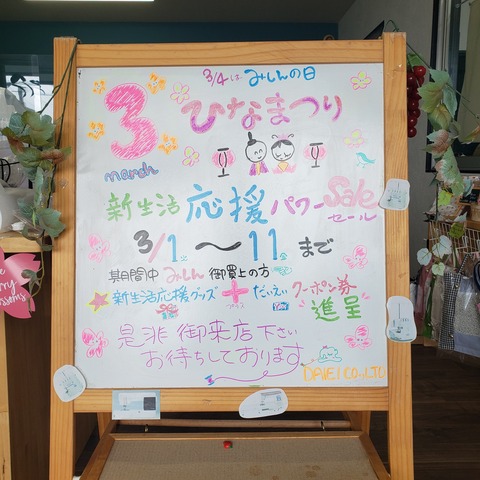 3/4は みしんの日
3
march
ひなまつり
新生活 応援 パワー Sale
セール
3/1土 〜 11 まで
期間中 みしん 御買上の方へ
新生活応援グッズ + だいえい クーポン券
プラス 進呈
是非 御来店下さい
お待ちしております
DAIEI CO.,LTD